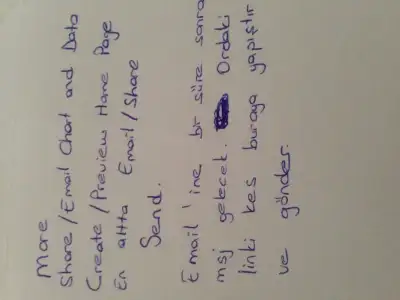 More
Share / Email Chat and Data
Create / Preview Home Page
En altta Email / Share
Send.
Email 'ine bir süre sonra
msj gelecek. Ordaki
linki kes buraya yapıştır
ve gönder.